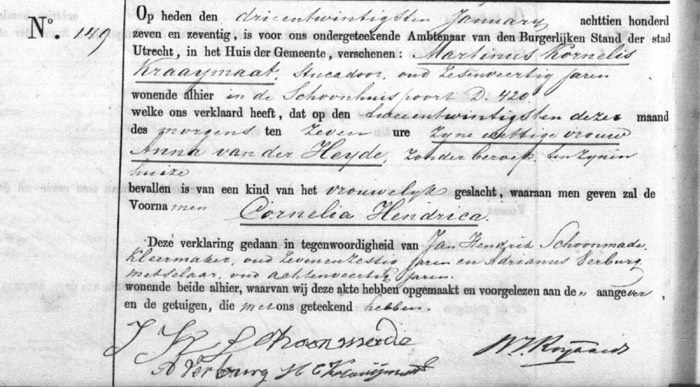 No. 149
Op heden den drieentwintigsten January achttien honderd
zeven en zeventig, is voor ons ondergeteekende Ambtenaar van den Burgerlijken Stand der stad
Utrecht, in het Huis der Gemeente, verschenen: Martinus Kornelis
Kraaymaat, stucadoor, oud zesenveertig jaren
wonende alhier in de Schoonhuispoort D. 420.
welke ons verklaard heeft, dat op den tweeentwintigsten dezer maand
des morgens ten zeven ure zyne wettige vrouw
Anna van der Heyde, zonder beroep, ten zynen
huize
bevallen is van een kind van het vrouwelyk geslacht, waaraan men geven zal de
Voornamen Cornelia Hendrica.
Deze verklaring gedaan in tegenwoordigheid van Jan Hendrik Schoonmade,
kleermaker, oud zevenenzestig jaren en Adrianus Verburg
metselaar, oud achtenveertig jaren.
wonende beide alhier, waarvan wij deze akte hebben opgemaakt en voorgelezen aan de" aangever
en de getuigen, die met ons geteekend hebben.
J H Schoonmade
A Verburg M C Kraaijmaat